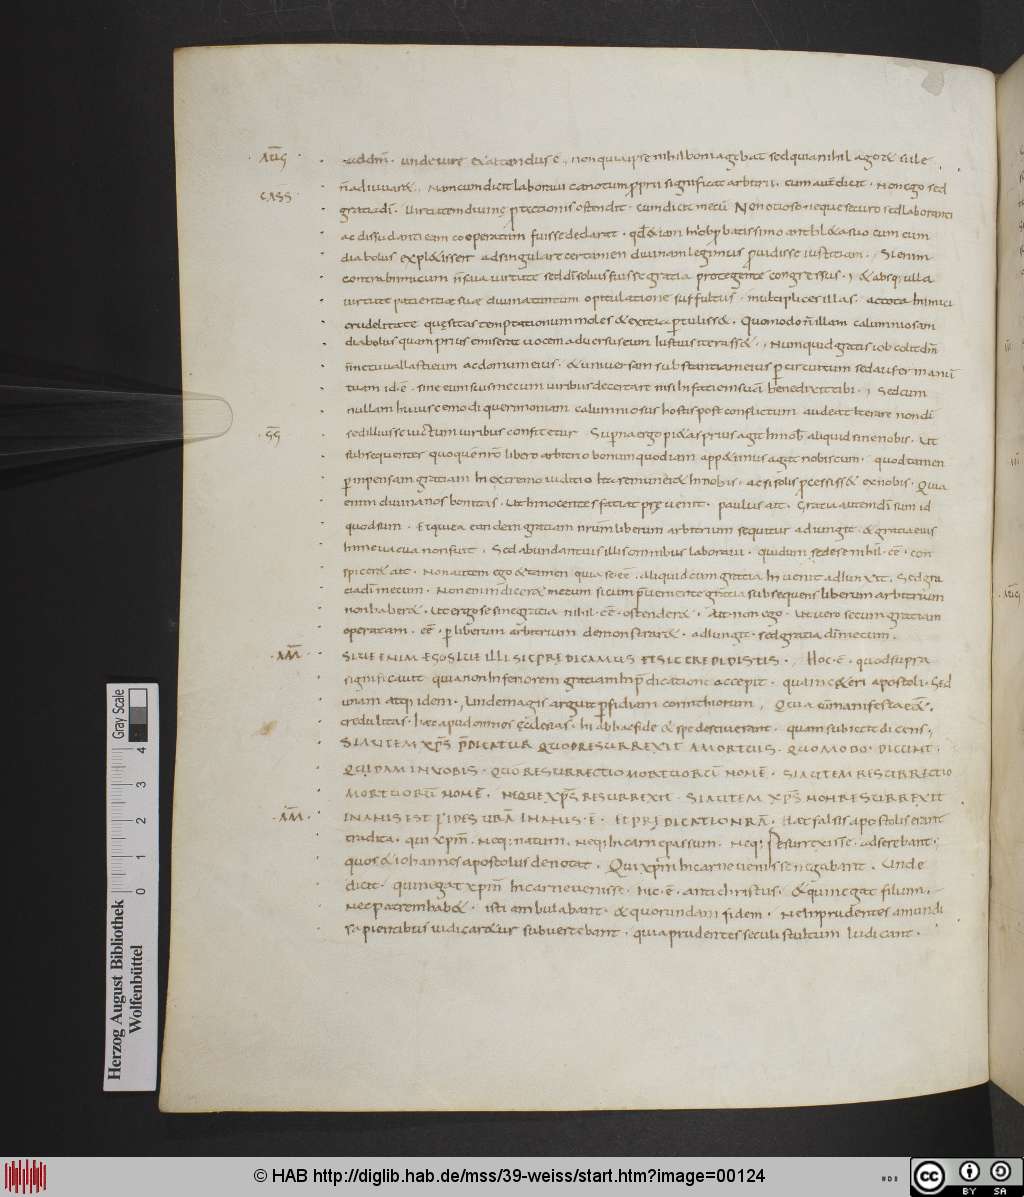 · aūg · addm̄ · unde uire exaltandus ē ·, non quia ipse nihil boni agebat sed quia nihil ageret si ille
n̄ adiuuaret ·, Nam cum dicit laboraui
cass gratia dī · Uirtutem diuinę protectionis ostendit · cum dicit mecū Non otioso neque securo sed laboranti
ac desudanti eam cooperatam fuisse declarat ·
diabolus ad singulare certamen diuinam legimus prouidisse iustitiam ·, Si enim
contra inimicum n̄ sua uirtute sed dī solius fuisset gratia protegente congressus ·, & absq; ulla
uirtute patientiae suae diuina tantum opitulatione suffultus · multiplices illas · ac tota inimici
crudelitate quęsitas temptationum moles & exitia pertulisset · Quomodo n̄ illam calumniosam
diabolus quam prius emiserat uocem aduersus eum iustius iterasset ·, Numquid gratis iob colit dm̄
& uniuersam substantiam eius per circuitum sed aufer manū
tuam id · ē · sine eum suis mecum uiribus decertare nisi in faciem tuam benedixerit tibi ·, Sed cum
nullam huiuscemodi querimoniam calumniosus hostis post conflictum audeat iterare non dī
· ss · sed illius se uictum uiribus confitetur · Superna ergo pietas prius agit in nob aliquid sine nobis · Ut
subsequente quoque nr̄o libero arbitrio bonum quod iam appetimus agat nobiscum · quod tamen
per inpensam gratiam in extremo iudicio ita remuneret in nobis · ac si solis processisset ex nobis · Quia
enim diuina nos bonitas · ut innocentes faciat pręuenit · paulus ait · Gratia autem dī sum id
quod sum · Et quia eandem gratiam nr̄um liberum arbitrium sequitur adiungit · & gratia eius
in me uacua non fuit · Sed abundantius illis omnibus laboraui · qui dum se de se nihil · ēē · con
spiceret ait · Non autem ego & tamen quia se · ēē · aliquid cum gratia inuenit adiunxit · Sed gra
tia dī mecum · Non enim diceret mecum si cum preueniente gratia subsequens liberum arbitrium
non haberet · Ut ergo se sine gratia nihil · ēē · ostenderet · Ait · non ego · Ut uero se cum gratiam
operatam · ēē · per liberum arbitrium demonstraret · adiungit · sed gratia dī mecum ·
· am̄ · SIUE ENIM EGO SIUE ILLI SIC PRĘDICAMUS ET SIC CREDIDISTIS ·, Hoc · ē · quod supra
significauit quia non inferiorem gratiam in prędicatione accepit · quam ceteri apostoli · Sed
unam atq; idem · Unde magis arguit perfidiam corinthiorum ·,
credulitas · haec apud omnes ęcclesias · hi ab hac fide & spe desciuerant · quam subiecit dicens ·,
SI AUTEM XP̄S P̄DICATUR QUOD RESURREXIT A MORTUIS · QUOMODO · DICUNT ·
QUIDAM IN UOBIS · QUO̅ RESURRECTIO MORTUORŪ NON Ē · SI AUTEM RESURRECTIO
MORTUORŪ NON Ē · NEQUE XP̄S RESURREXIT · SI AUTEM XP̄S NON RESURREXIT
· am̄ · INANIS EST FIDES UR̄A INANIS · Ē · ET PRĘDICATIO NR̄A · Haec a falsis apostolis erant
tradita · qui xpm̄ · Neq; natum · neq; in carne passum · Neq; resurrexisse · adserebant ·
quos & iohannes apostolus denotat · Qui xpm̄ in carne uenisse negabant · Unde
dicit · qui negat xpm̄ in carne uenisse · hic · ē · antichristus · & qui negat filium ·
nec patrem habet · isti ambulabant · & quorundam fidem · Ne inprudentes a mundi
sapientibus iudicaretur subuertebant · quia prudentes seculi stultum iudicant ·
Herzog August Bibliothek
Wolfenbüttel
0 1 2 3 4
Gray Scale
© HAB http://diglib.hab.de/mss/39-weiss/start.htm?image=00124
cc BY SA